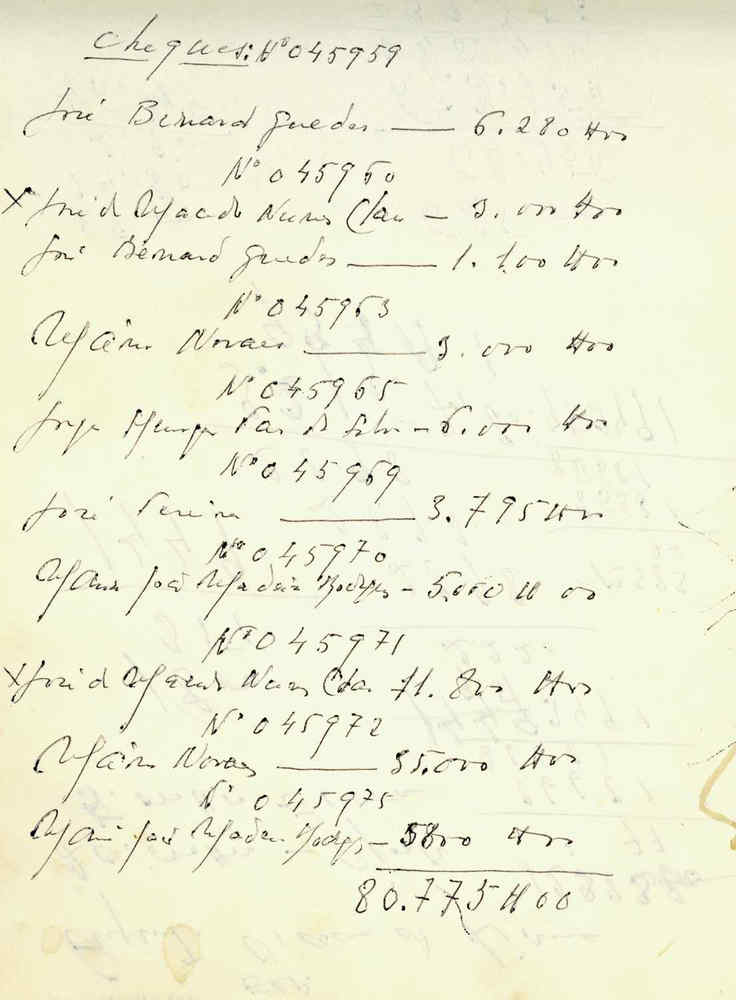 Cheques: Nº 045959
José Bernard Guedes — 6.280 $00
Nº 045960
X José d Macedo Nunes Cta — 3.000 $00
José Bernard Guedes — 1.100 $00
Nº 045963
Mário Novaes — 3.000 $00
Nº 045965
Jorge Henrique Pais da Silva — 6.000 $00
Nº 045969
José Pereira — 3.795 $00
Nº 045970
Maria José Madeira Rodrigues — 5.000 $00
Nº 045971
X José d Macedo Nunes Cta. 11.800 $00
Nº 045972
Mário Novaes — 35.000 $00
Nº 045975
Maria José Madeira Rodrigues — 5800 $00
80.775 $00